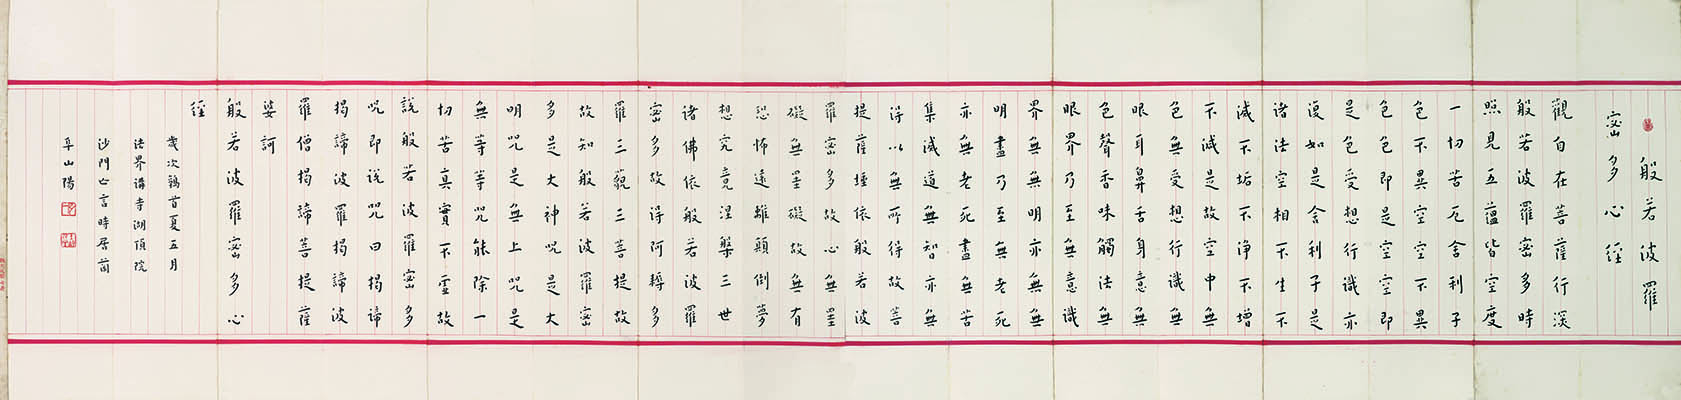 般若波羅
密多心經
觀自在菩薩行深
般若波羅密多時
照見五蘊皆空度
一切苦厄舍利子
色不異空空不異
色色即是空空即
是色受想行識亦
復如是舍利子是
諸法空相不生不
滅不垢不淨不增
不減是故空中無
色無受想行識無
眼耳鼻舌身意無
色聲香味觸法無
眼界乃至無意識
界無無明亦無無
明盡乃至無老死
亦無老死盡無苦
集滅道無智亦無
得以無所得故菩
提薩埵依般若波
羅密多故心無罣
礙無罣礙故無有
恐怖遠離顛倒夢
想究竟涅槃三世
諸佛依般若波羅
密多故得阿耨多
羅三藐三菩提故
故知般若波羅密
多是大神咒是大
明咒是無上咒是
無等等咒能除一
切苦真實不虛故
說般若波羅密多
咒即說咒曰揭諦
揭諦波羅揭諦波
羅僧揭諦菩提薩
婆訶
般若波羅密多心
經
歲次鶉首夏五月
法界講寺湖頂院
沙門亡言時居
山陽